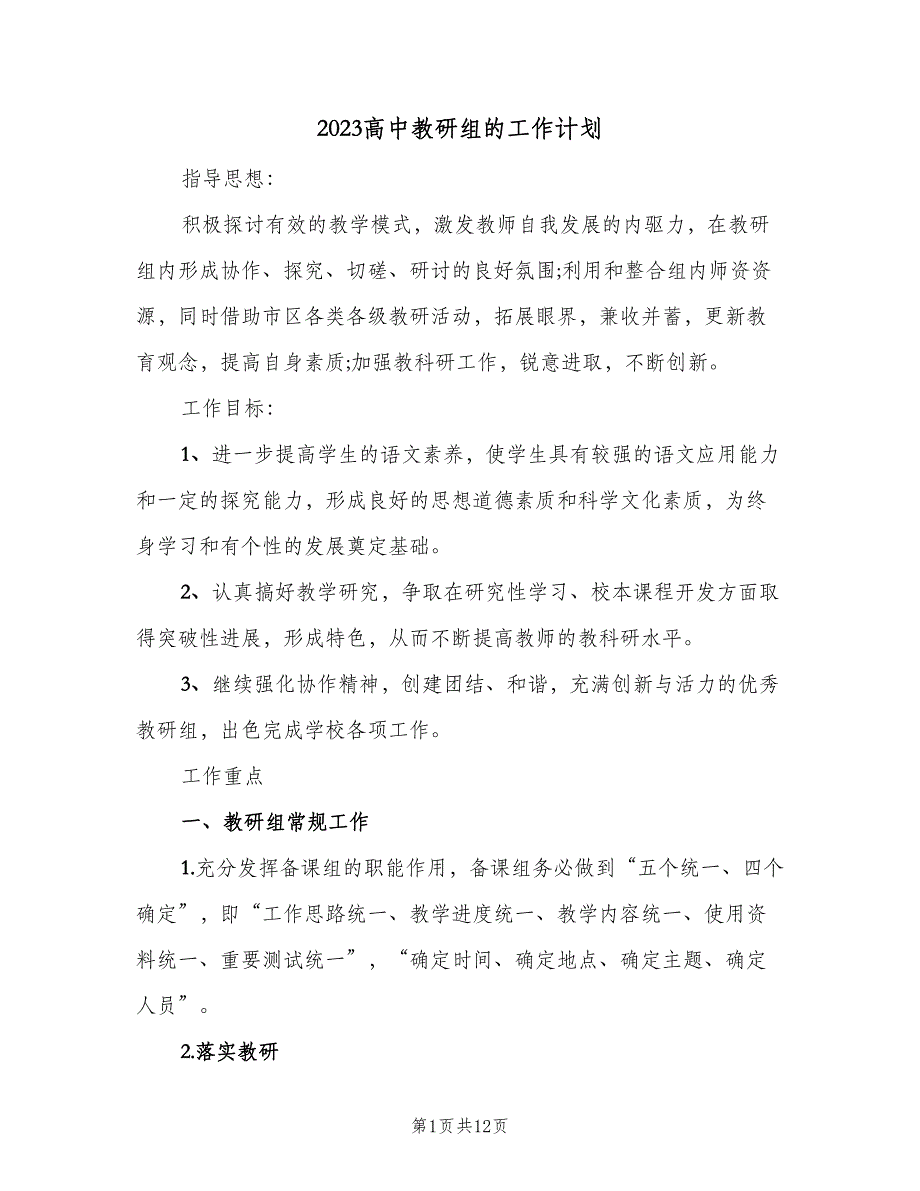 2023高中教研组的工作计划
指导思想：
积极探讨有效的教学模式，激发教师自我发展的内驱力，在教研
组内形成协作、探究、切磋、研讨的良好氛围;利用和整合组内师资资
源，同时借助市区各类各级教研活动，拓展眼界，兼收并蓄，更新教
育观念，提高自身素质;加强教科研工作，锐意进取，不断创新。
工作目标：
1、进一步提高学生的语文素养，使学生具有较强的语文应用能力
和一定的探究能力，形成良好的思想道德素质和科学文化素质，为终
身学习和有个性的发展奠定基础。
2、认真搞好教学研究，争取在研究性学习、校本课程开发方面取
得突破性进展，形成特色，从而不断提高教师的教科研水平。
3、继续强化协作精神，创建团结、和谐，充满创新与活力的优秀
教研组，出色完成学校各项工作。
工作重点
一、教研组常规工作
1.充分发挥备课组的职能作用，备课组务必做到“五个统一、四个
确定”，即“工作思路统一、教学进度统一、教学内容统一、使用资
料统一、重要测试统一”，“确定时间、确定地点、确定主题、确定
人员”。
2.落实教研
第1页共12页